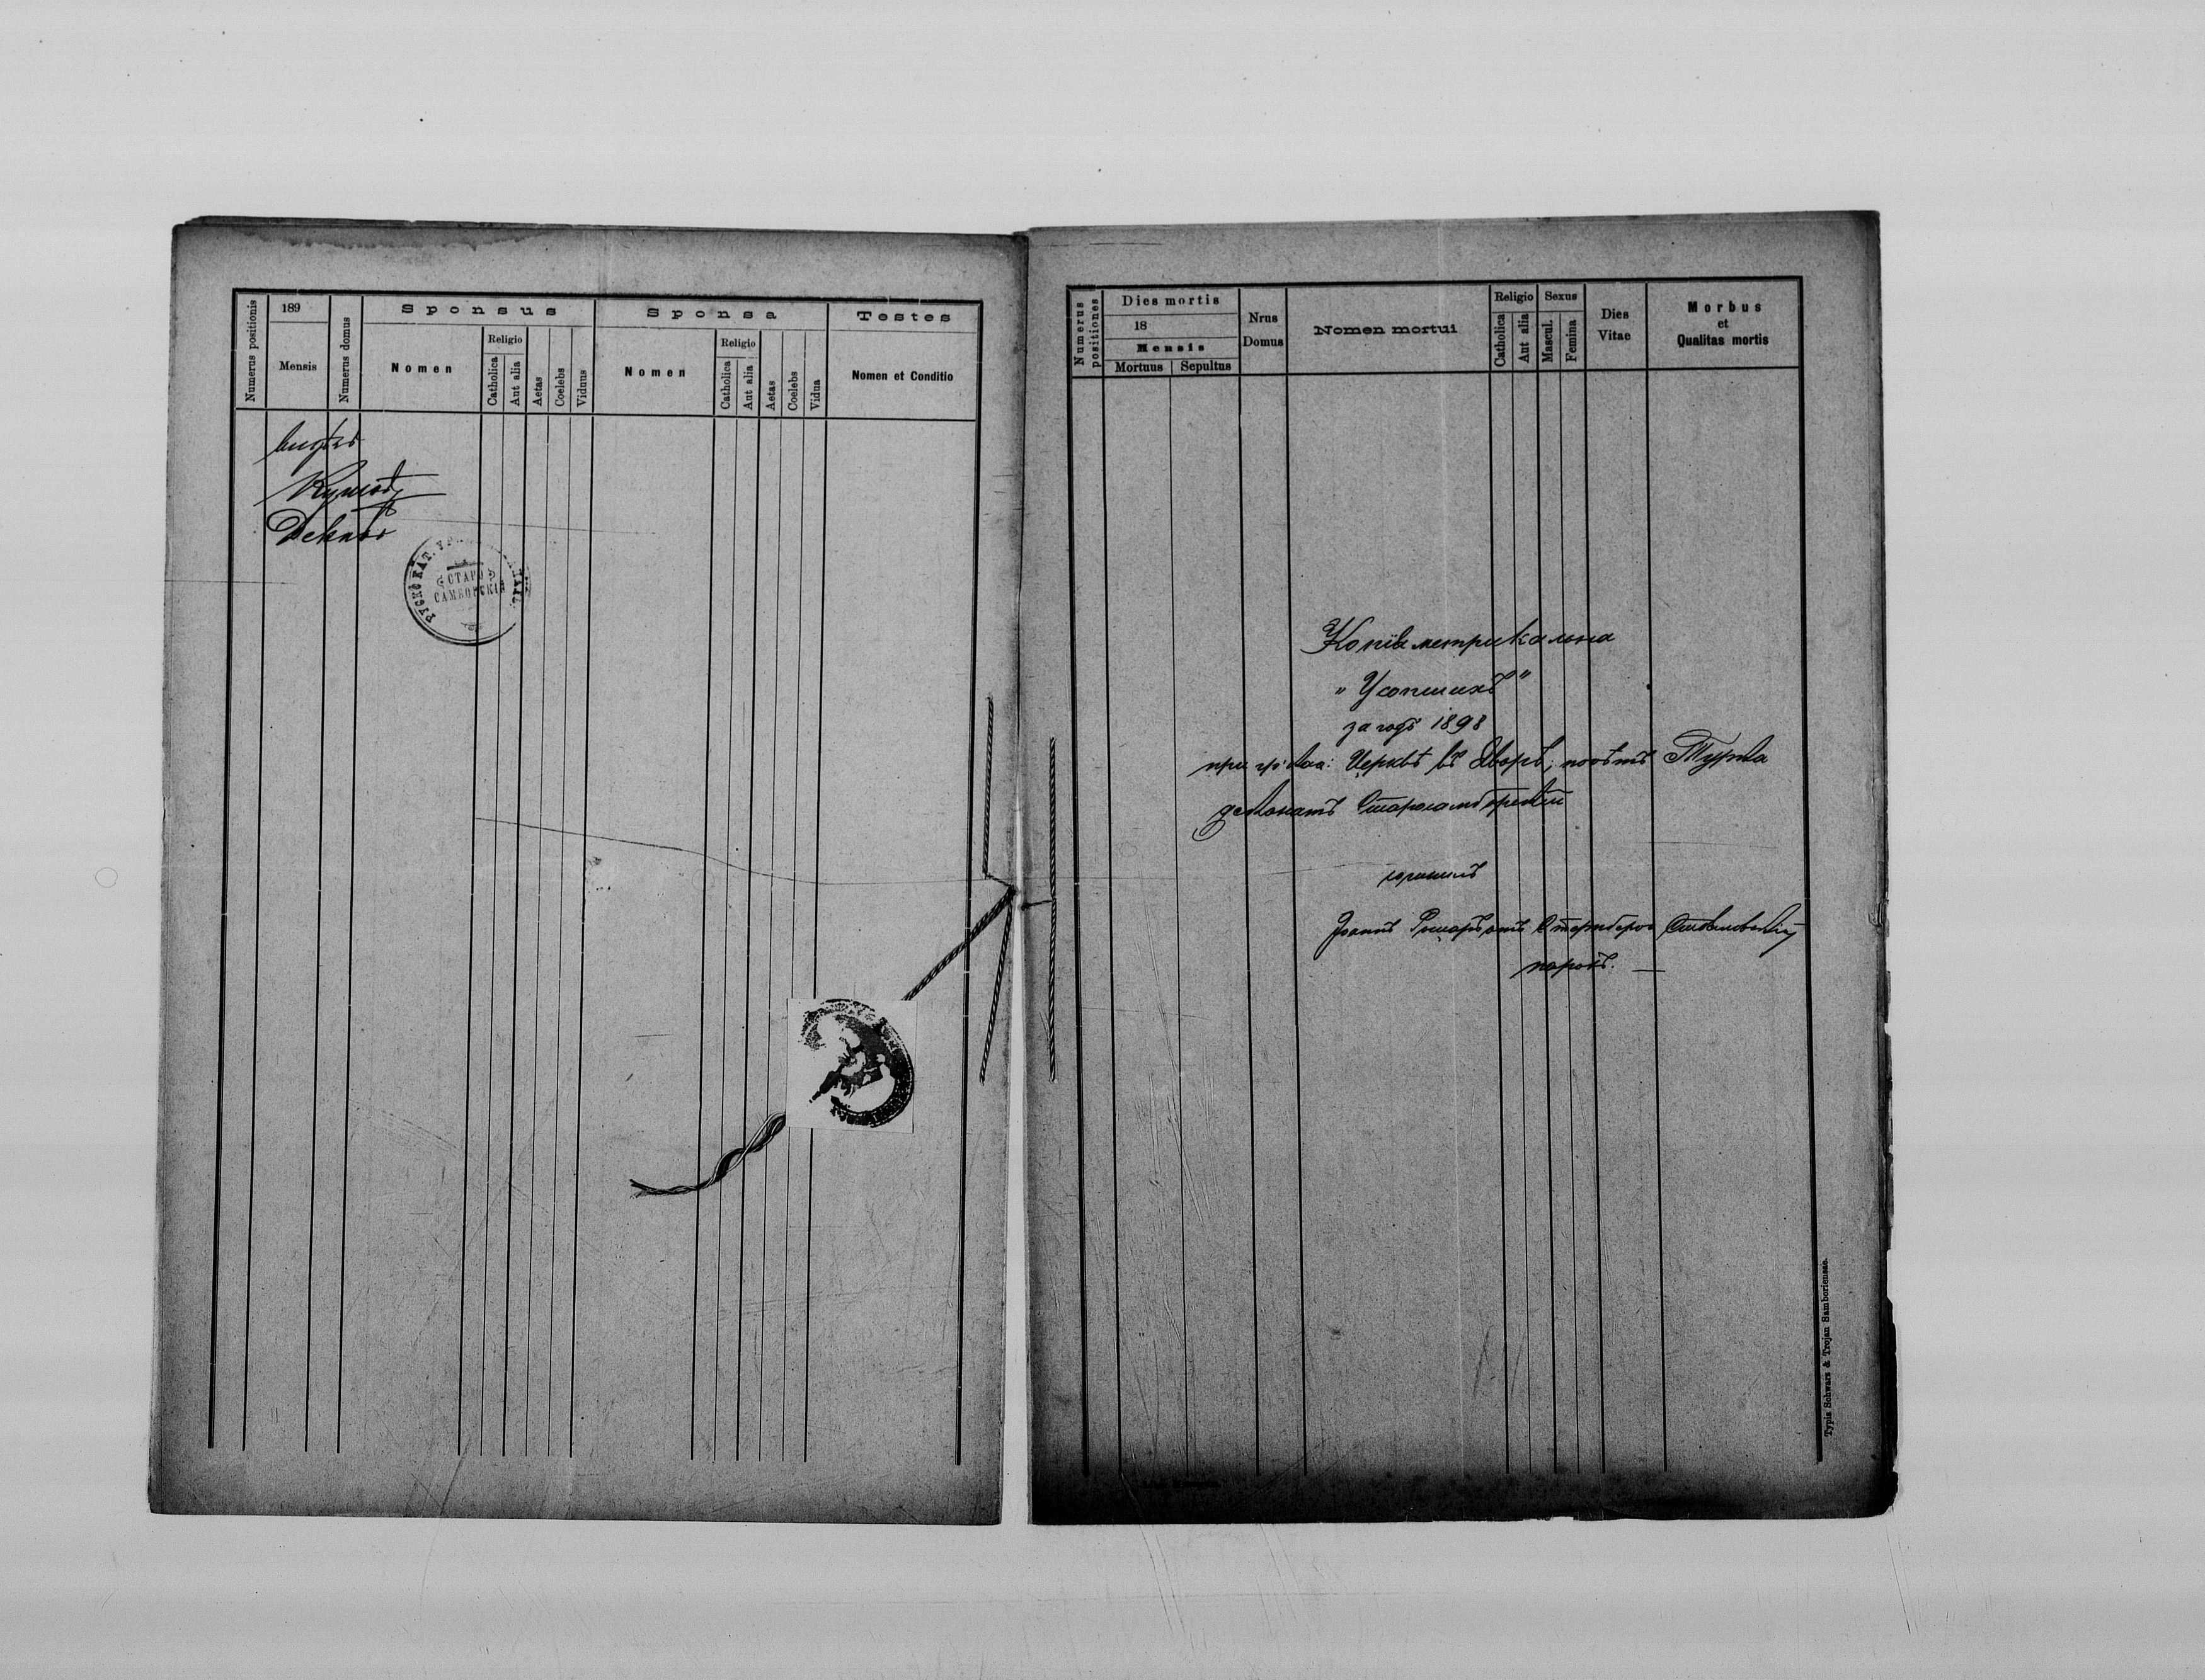 Numerus positionis
189
Mensis
Numerus domus
Sponsus
Nomen
Religio
Catholica
Aut alia
Aetas
Coelebs
Viduus
Sponsa
Nomen
Religio
Catholica
Aut alia
Aetas
Coelebs
Vidua
Testes
Nomen et Conditio
РУСКО КАТ. УР
СТАРО
САМБОРСКІЙ
Numerus positiones
Dies mortis
18
Mensis
Mortuus
Sepultus
Nrus
Domus
Nomen mortui
Religio
Catholica
Aut alia
Sexus
Mascul.
Femina
Dies
Vitae
Morbus
et
Qualitas mortis
Копія метрикальна
"Усопшихъ"
за годъ 1898
при Церквѣ въ Яворѣ, повѣтъ Турка
деканатъ Старосамборскій
Іоаннъ
парохъ. —
Typis Schwarz & Trojan Samboriensae.